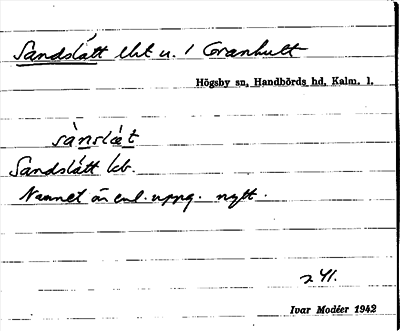 Sandslätt lht u. 1 Granhult
Högsby sn, Handbörds hd, Kalm. l.
sànslæ̀t
Sandslätt kb.
Namnet är enl. uppg. nytt.
241.
Ivar Modéer 1942